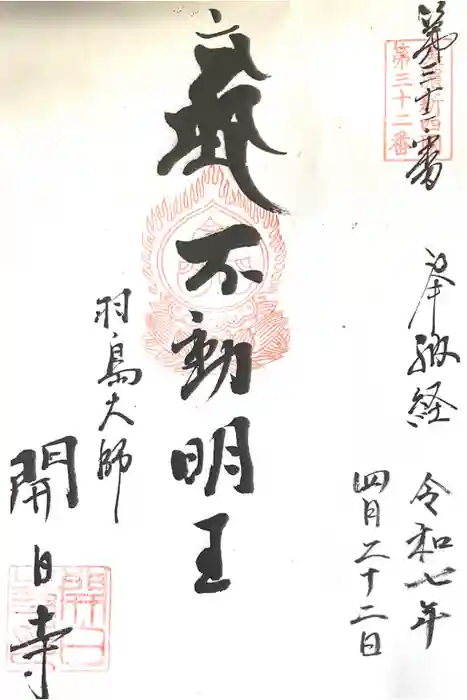 第三十二番
第三十二番
奉納経
令和七年
四月二十二日
不動明王
羽島大師
開白寺
開白